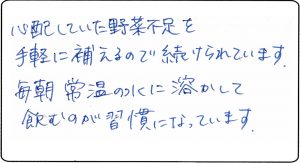 心配していた野菜不足を
手軽に補えるので続けられています.
毎朝常温の水に溶かして
飲むのが習慣になっています.